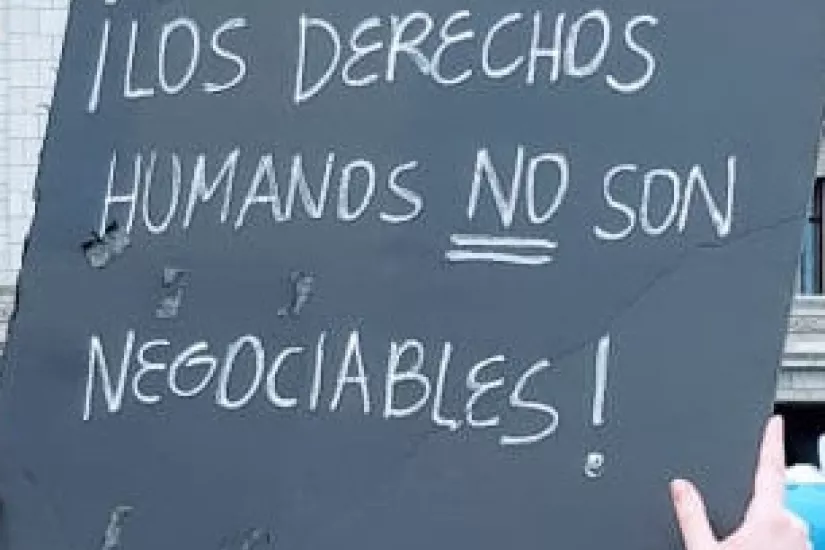 ¡LOS DERECHOS
HUMANOS NO SON
NEGOCIABLES!